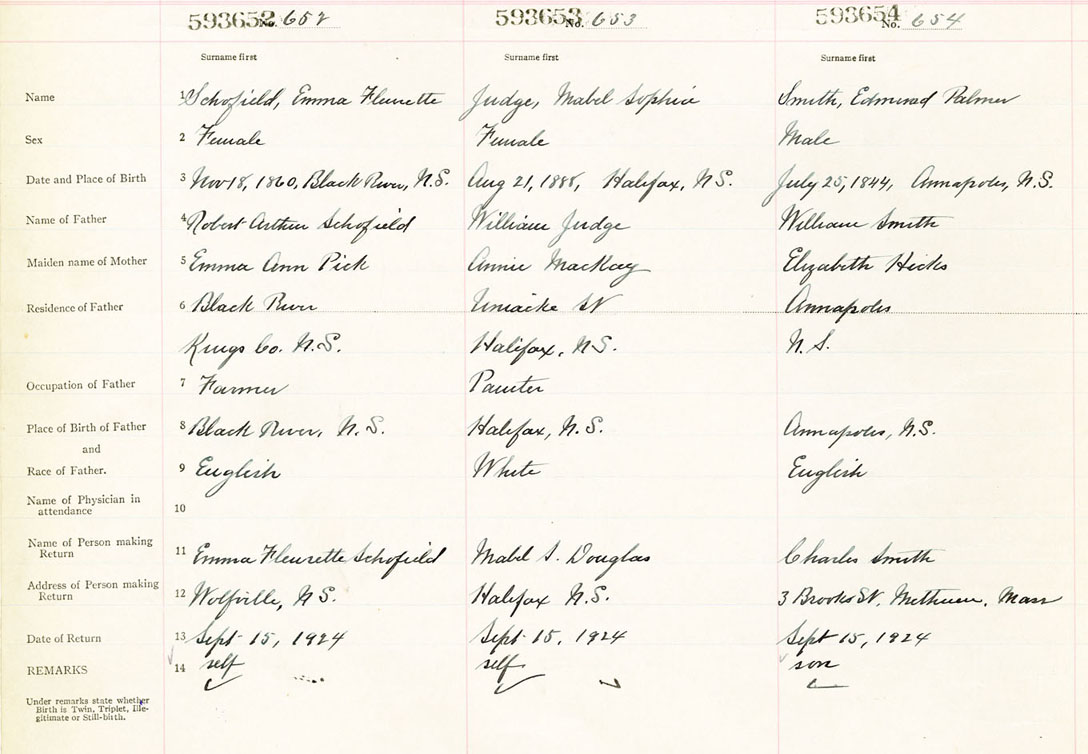 593652 No. 652 593653 No. 653 593654 No. 654
Surname first Surname first Surname first
Name 1 Schofield, Emma Fleurette Judge, Mabel Sophia Smith, Edmund Palmer
Sex 2 Female Female Male
Date and Place of Birth 3 Nov 18, 1860, Black River, N.S. Aug 21, 1888, Halifax, N.S. July 25, 1844, Annapolis, N.S.
Name of Father 4 Robert Arthur Schofield William Judge William Smith
Maiden name of Mother 5 Emma Ann Pick Annie MacKay Elizabeth Hicks
Residence of Father 6 Black River Uniacke St Annapolis
Kings Co. N.S. Halifax, N.S. N.S.
Occupation of Father 7 Farmer Painter
Place of Birth of Father 8 Black River, N.S. Halifax, N.S. Annapolis, N.S.
and
Race of Father. 9 English White English
Name of Physician in
attendance 10
Name of Person making
Return 11 Emma Fleurette Schofield Mabel S. Douglas Charles Smith
Address of Person making
Return 12 Wolfville, N.S. Halifax N.S. 3 Brooks St, Methuen, Mass
Date of Return 13 Sept 15, 1924 Sept 15, 1924 Sept 15, 1924
REMARKS 14 self self son
Under remarks state whether
Birth is Twin, Triplet, Ille-
gitimate or Still-birth.